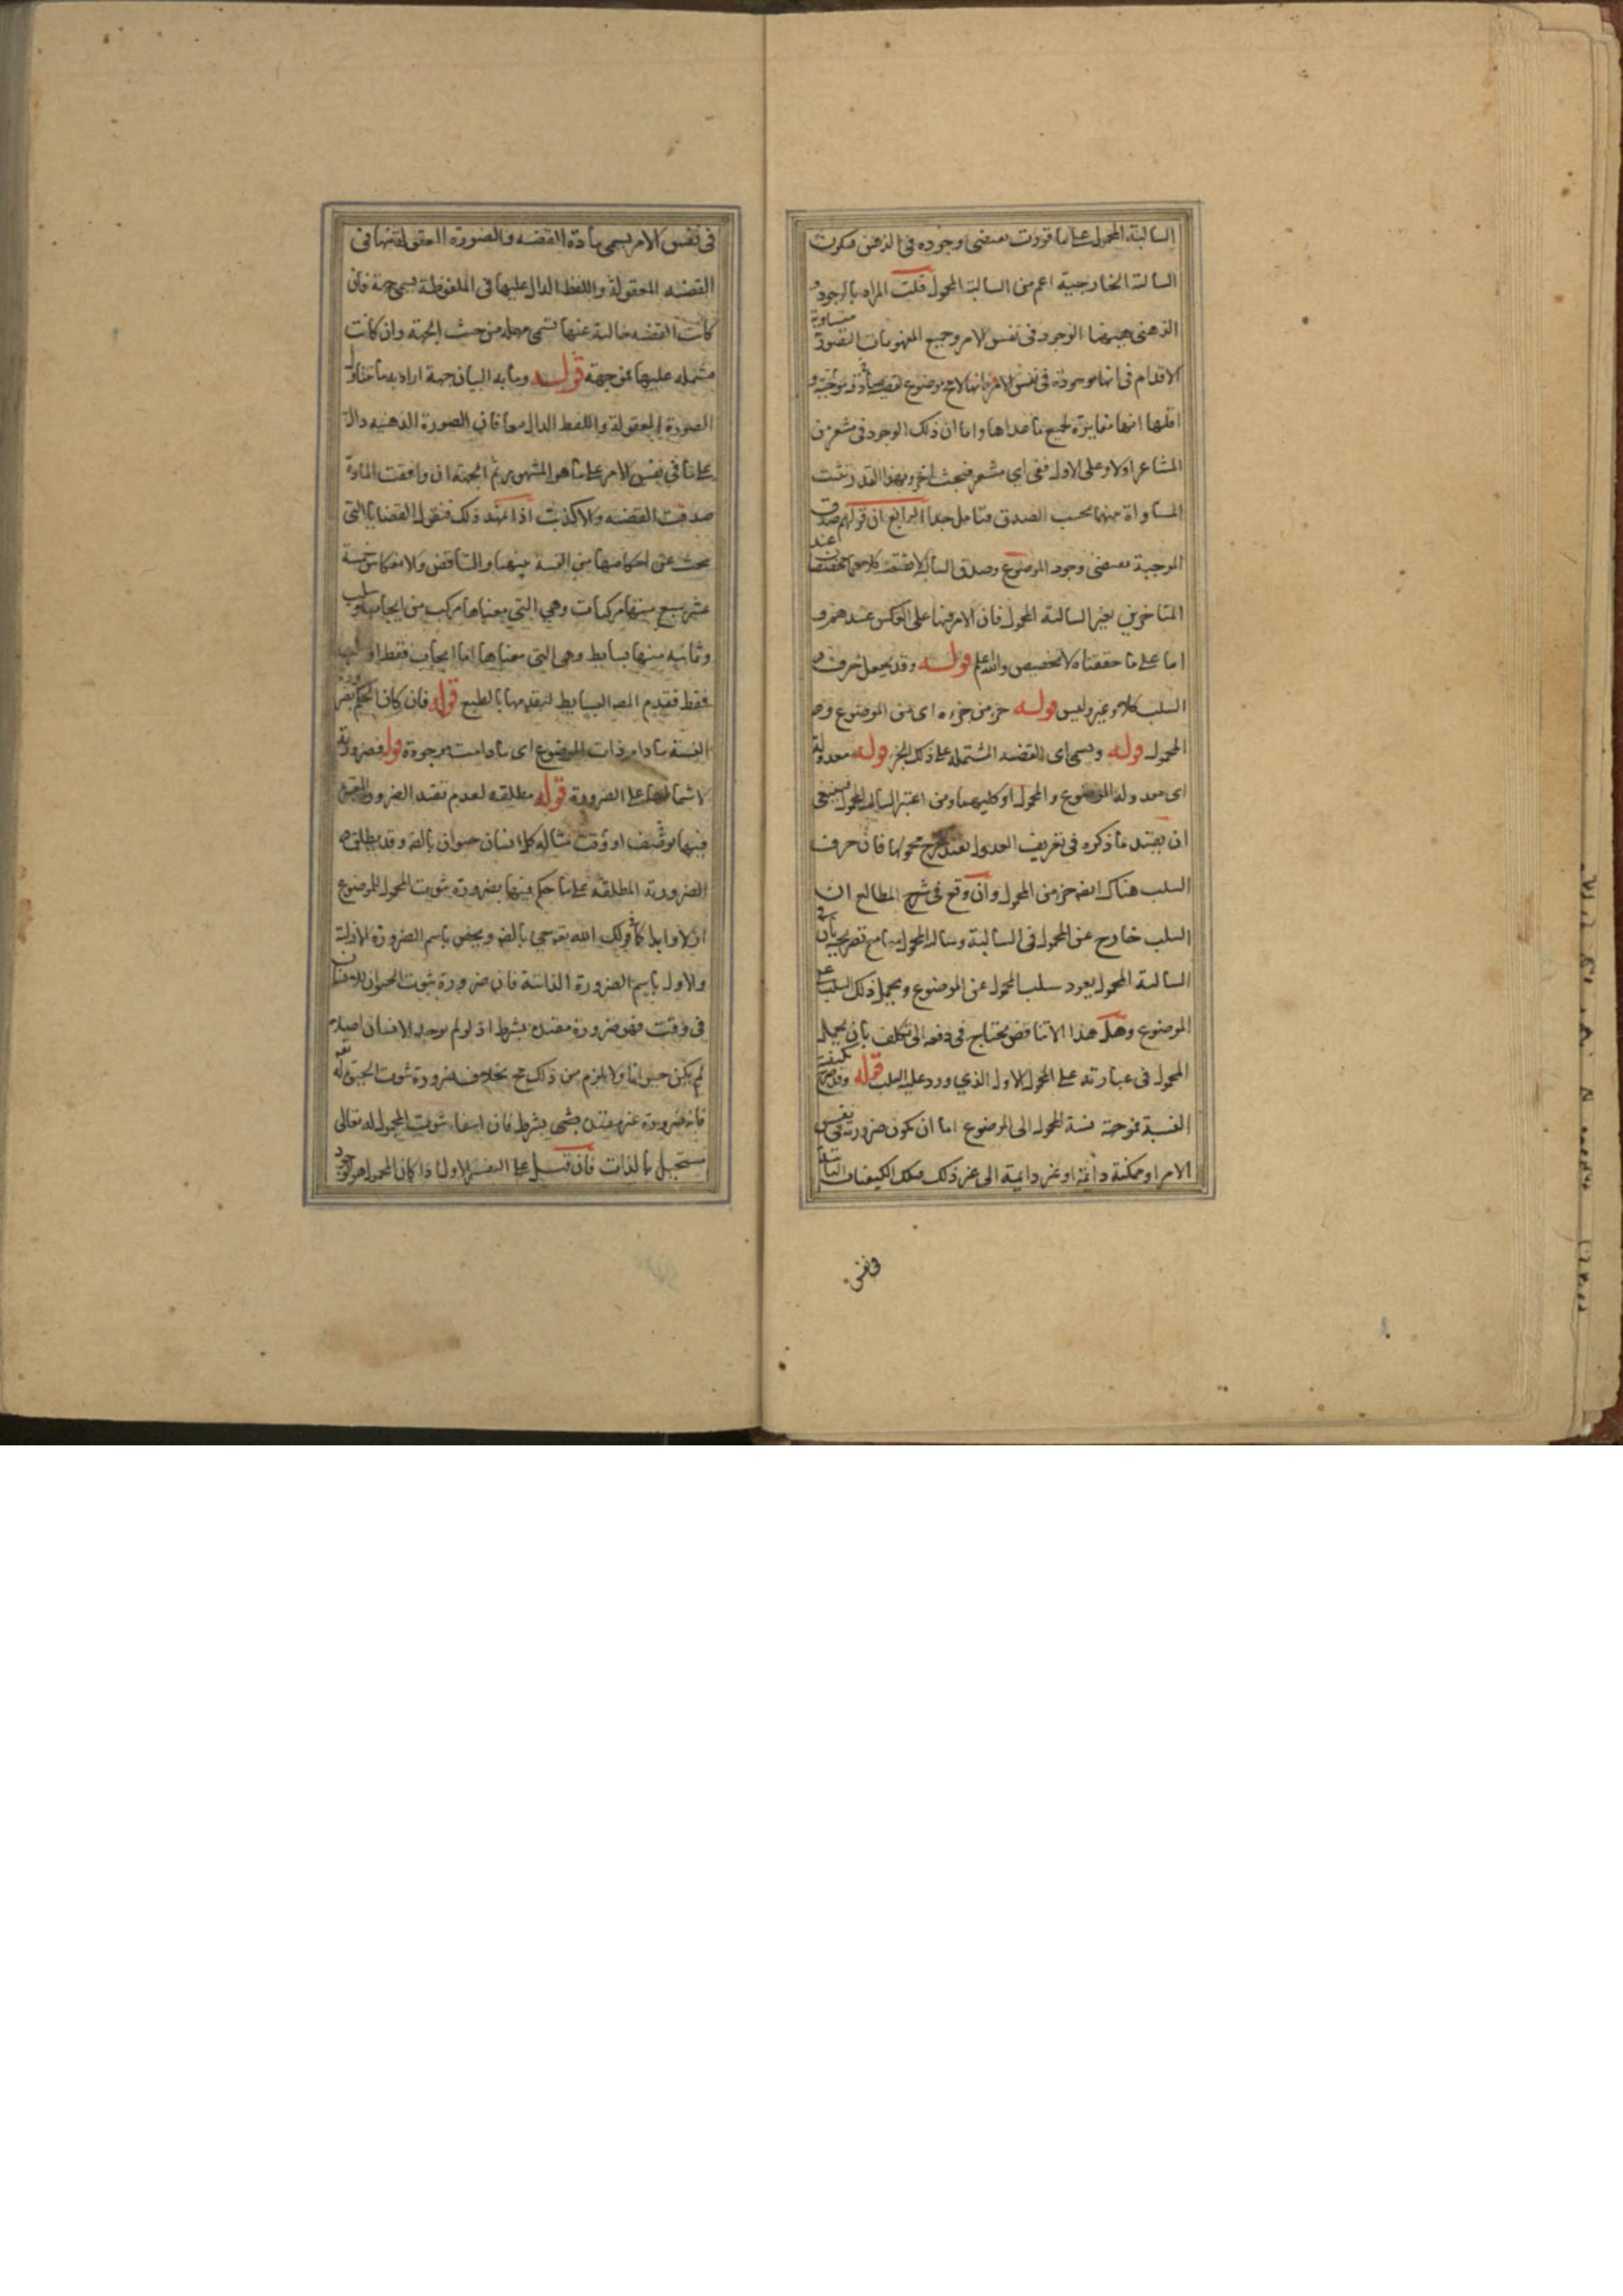 السالبة المحمول على ما قررت يقتضى وجوده فى الذهن فيكون
السالبة الخارجية اعم من السالبة المحمول قلت المراد بالوجود
الذهنى ههنا الوجود فى نفس الامر وجميع المفهومات التصورية متساوية
الاقدام فى انها موجودة فى نفس الامر فانها لامح موضوع لقضية صادقة موجبة و
اقلها انها مغايرة لجميع ما عداها واما ان ذلك الوجود فى مشعر من
المشاعر اولا وعلى الاول ففى اى مشعر فبحث اخر وبهذا القدر يثبت
المساواة بينهما بحسب الصدق فتامل جدا الرابع ان قولهم صدق
الموجبة يقتضى وجود الموضوع وصدق السالبة لا يقتضيه عند
المتاخرين بغير السالبة المحمول فان الامر فيها على العكس عندهم و
اما على ما حققناه لا تخصيص والله اعلم قوله وقد يجعل حرف
السلب كلا وغير وليس قوله جزء من جزء اى من الموضوع و
المحمول قوله ويسمى اى القضية المشتملة على ذلك الجزء قوله معدولة
اى معدولة الموضوع والمحمول او كليهما ومن اعتبر السالبة المحمول فينبغى
ان يقيد ما ذكره فى تعريف العدول بقيد يخرج محمولها فان حرف
السلب هناك ايضا جزء من المحمول وان وقع فى شرح المطالع ان
السلب خارج عن المحمول فى السالبة وسالبة المحمول مع تصريحه بان فى
السالبة المحمول يعود سلب المحمول عن الموضوع ويحمل ذلك السلب على
الموضوع وهل هذا الا تناقض يحتاج فى دفعه الى تكلف بان يحمل
المحمول فى عبارته على المحمول الاول الذي ورد عليه السلب قوله وقد يصرح بكيفية
النسبة فموجهة نسبة المحمول الى الموضوع اما ان تكون ضرورية فى نفس
الامر او ممكنة دائمة او غير دائمة الى غير ذلك فتلك الكيفيات الثابتة
فى نفس
فى نفس الامر يسمى مادة القضية والصورة المعقولة منها فى
القضية المعقولة واللفظ الدال عليها فى الملفوظة يسمى جهة فان
كانت القضية خالية عنها تسمى مهملة من حيث الجهة وان كانت
مشتملة عليها فموجهة قوله وما به البيان جهة اراد به ما يتناول
الصورة المعقولة واللفظ الدال معا فان الصورة الذهنية دالة
على ما فى نفس الامر على ما هو المشهور ثم الجهة ان وافقت المادة
صدقت القضية والا كذبت اذا تمهد ذلك فنقول القضايا التى
يبحث عن احكامها من النسبة بينها والتناقض والانعكاس خمسة
عشر سبع منها مركبات وهى التى معناها مركب من ايجاب وسلب
وثمانية منها بسايط وهى التى معناها اما ايجاب فقط او سلب
فقط فقدم المص البسايط لتقدمها بالطبع قوله فان كان الحكم بضرورة
النسبة ما دام ذات الموضوع اى ما دامت موجودة قوله فضرورية
لاشتمالها على الضرورة قوله مطلقة لعدم تقييد الضرورة
فيها بوصف او وقت مثاله كل انسان حيوان بالضرورة وقد يطلق
الضرورية المطلقة على ما حكم فيها بضرورة ثبوت المحمول للموضوع
ازلا وابدا كقولك الله تعالى حى بالضرورة ويخص باسم الضرورة الازلية
والاول باسم الضرورة الذاتية فان ضرورة ثبوت الحيوان للانسان
فى وقت فهو ضرورة مقيدة بشرط اذ لو لم يوجد الانسان اصلا
لم يكن حيوانا ولا يلزم من ذلك مح بخلاف ضرورة ثبوت الحيوة له تعالى
فانه ضرورة غير مقيد بشىء بشرط فان انتفاء ثبوت المحمول له تعالى
مستحيل بالذات فان قيل على التفسير الاول اذا كان المحمول هو الوجود